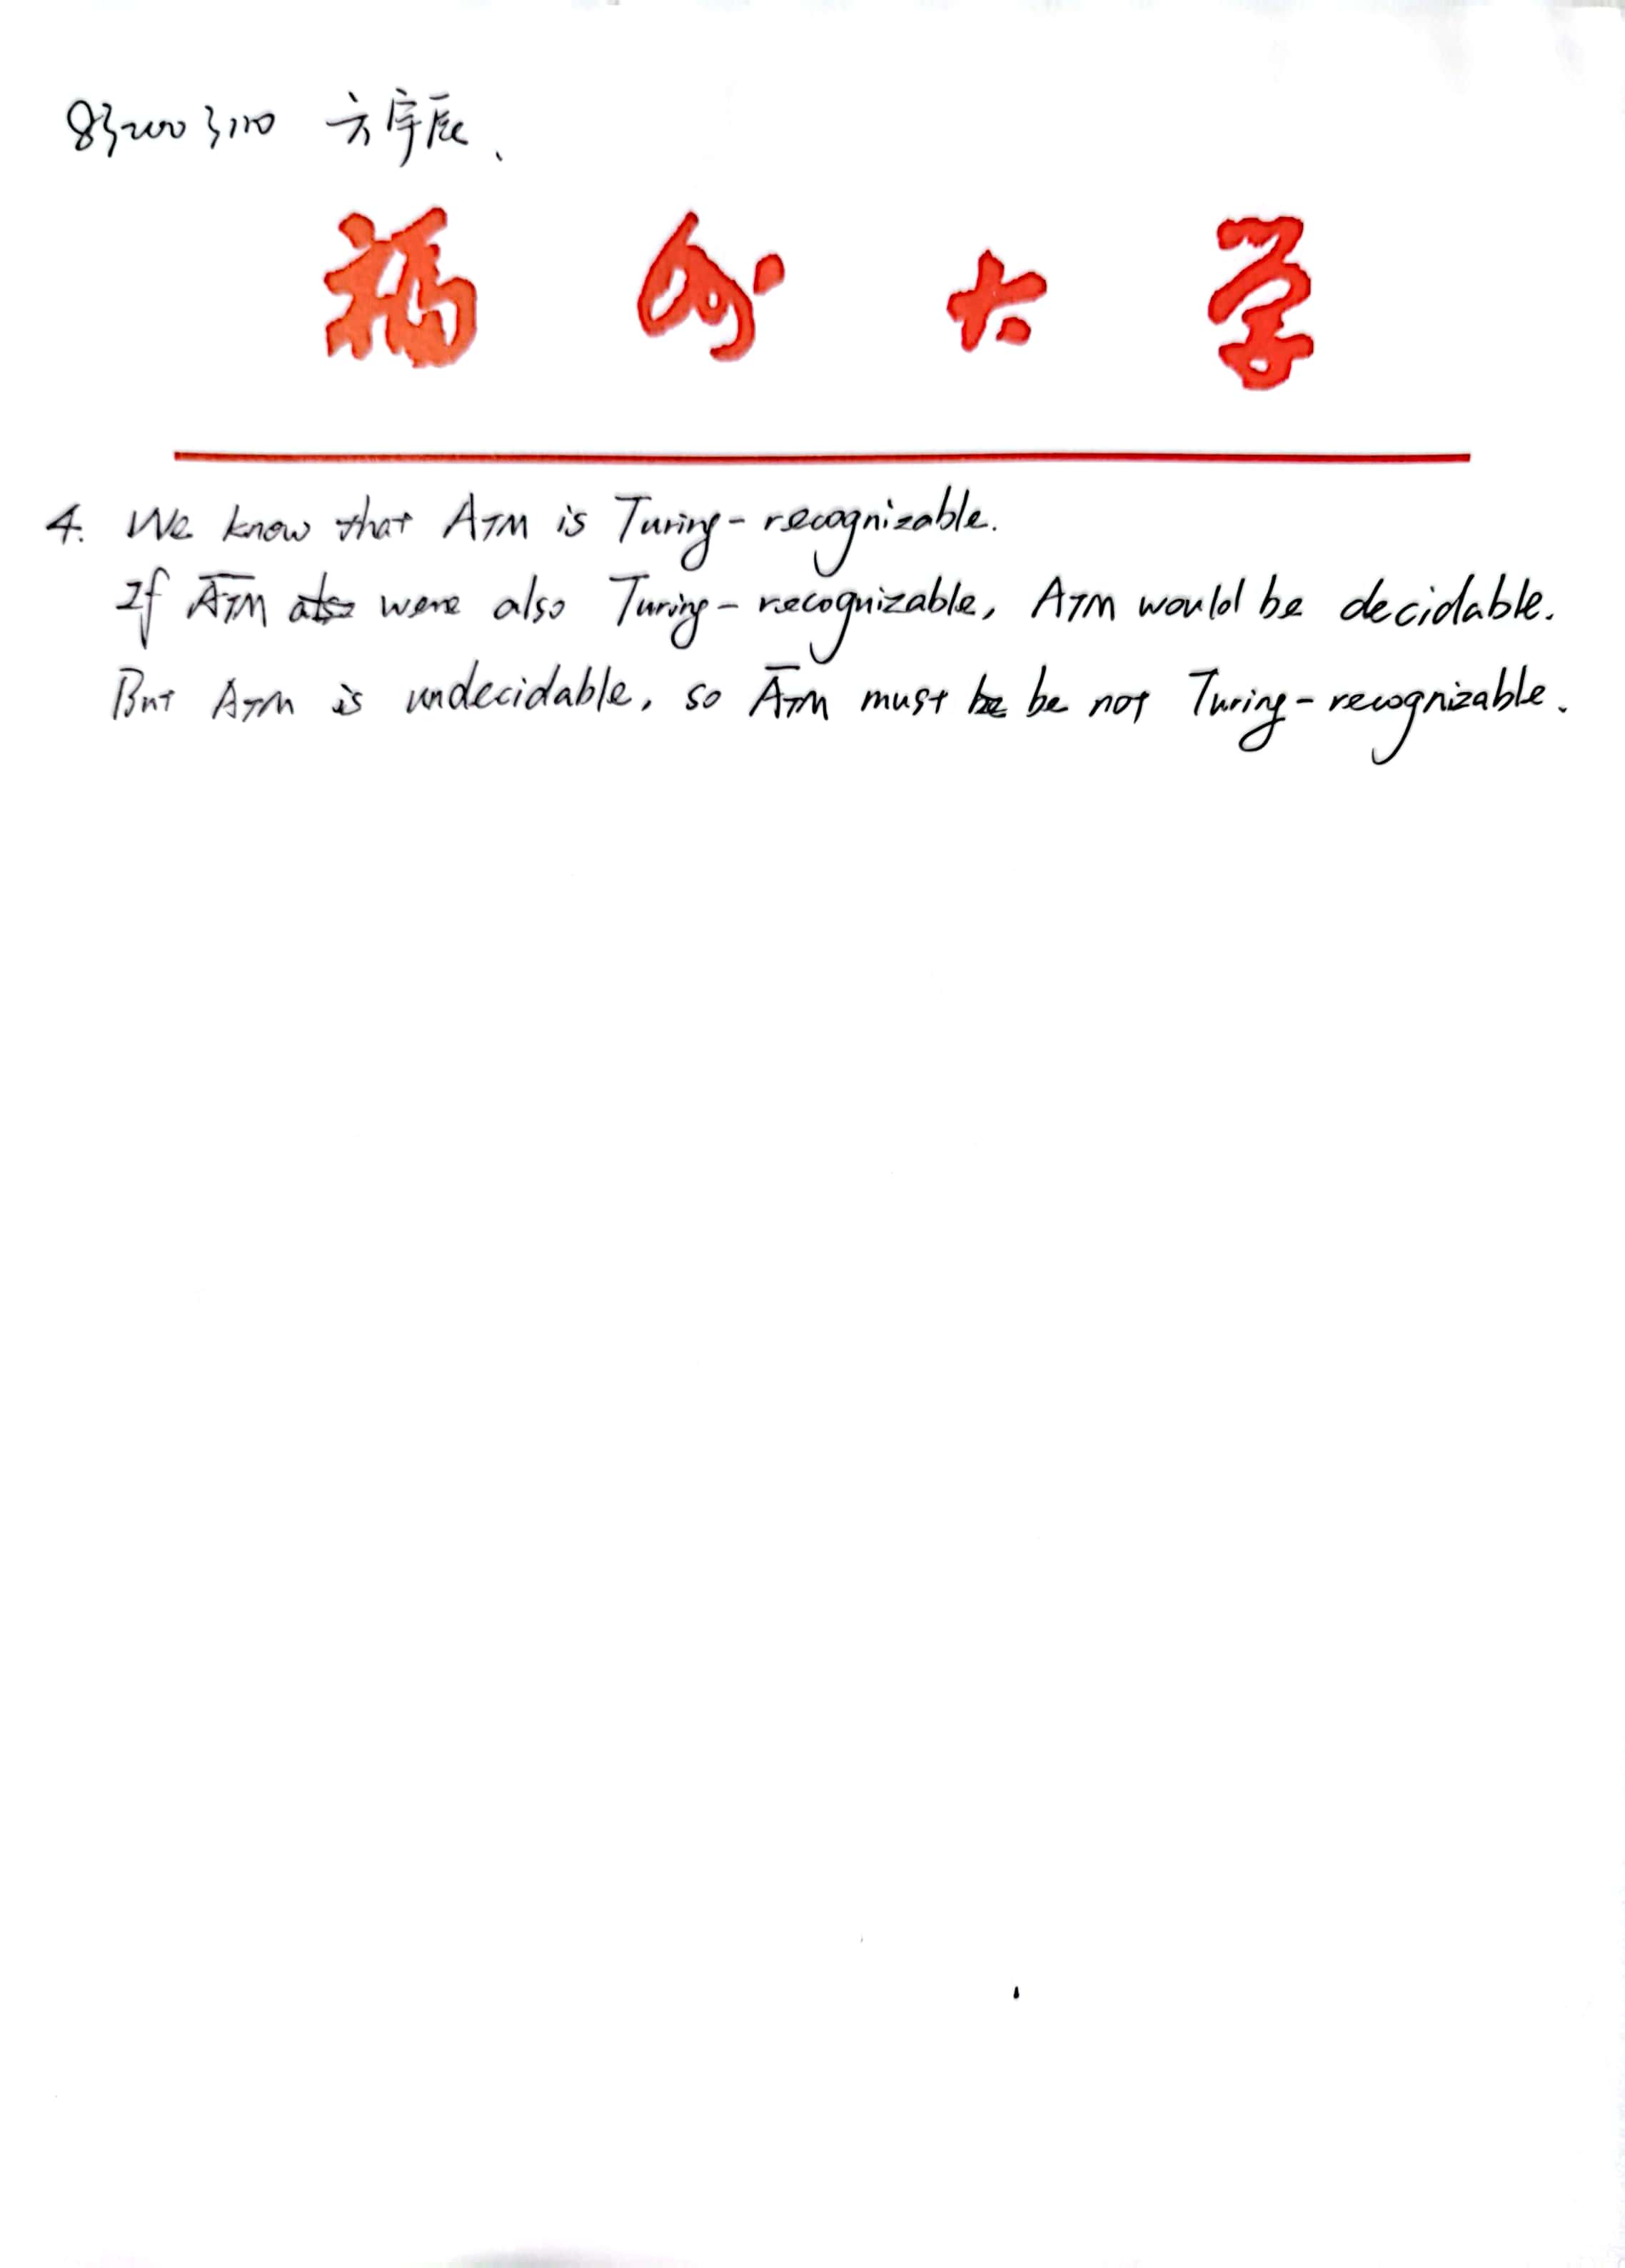 832003110 方宇辰、
福州大学
4. We know that ATM is Turing-recognizable.
If A̅T̅M̅ also were also Turing-recognizable, ATM would be decidable.
But ATM is undecidable, so A̅T̅M̅ must be be not Turing-recognizable.